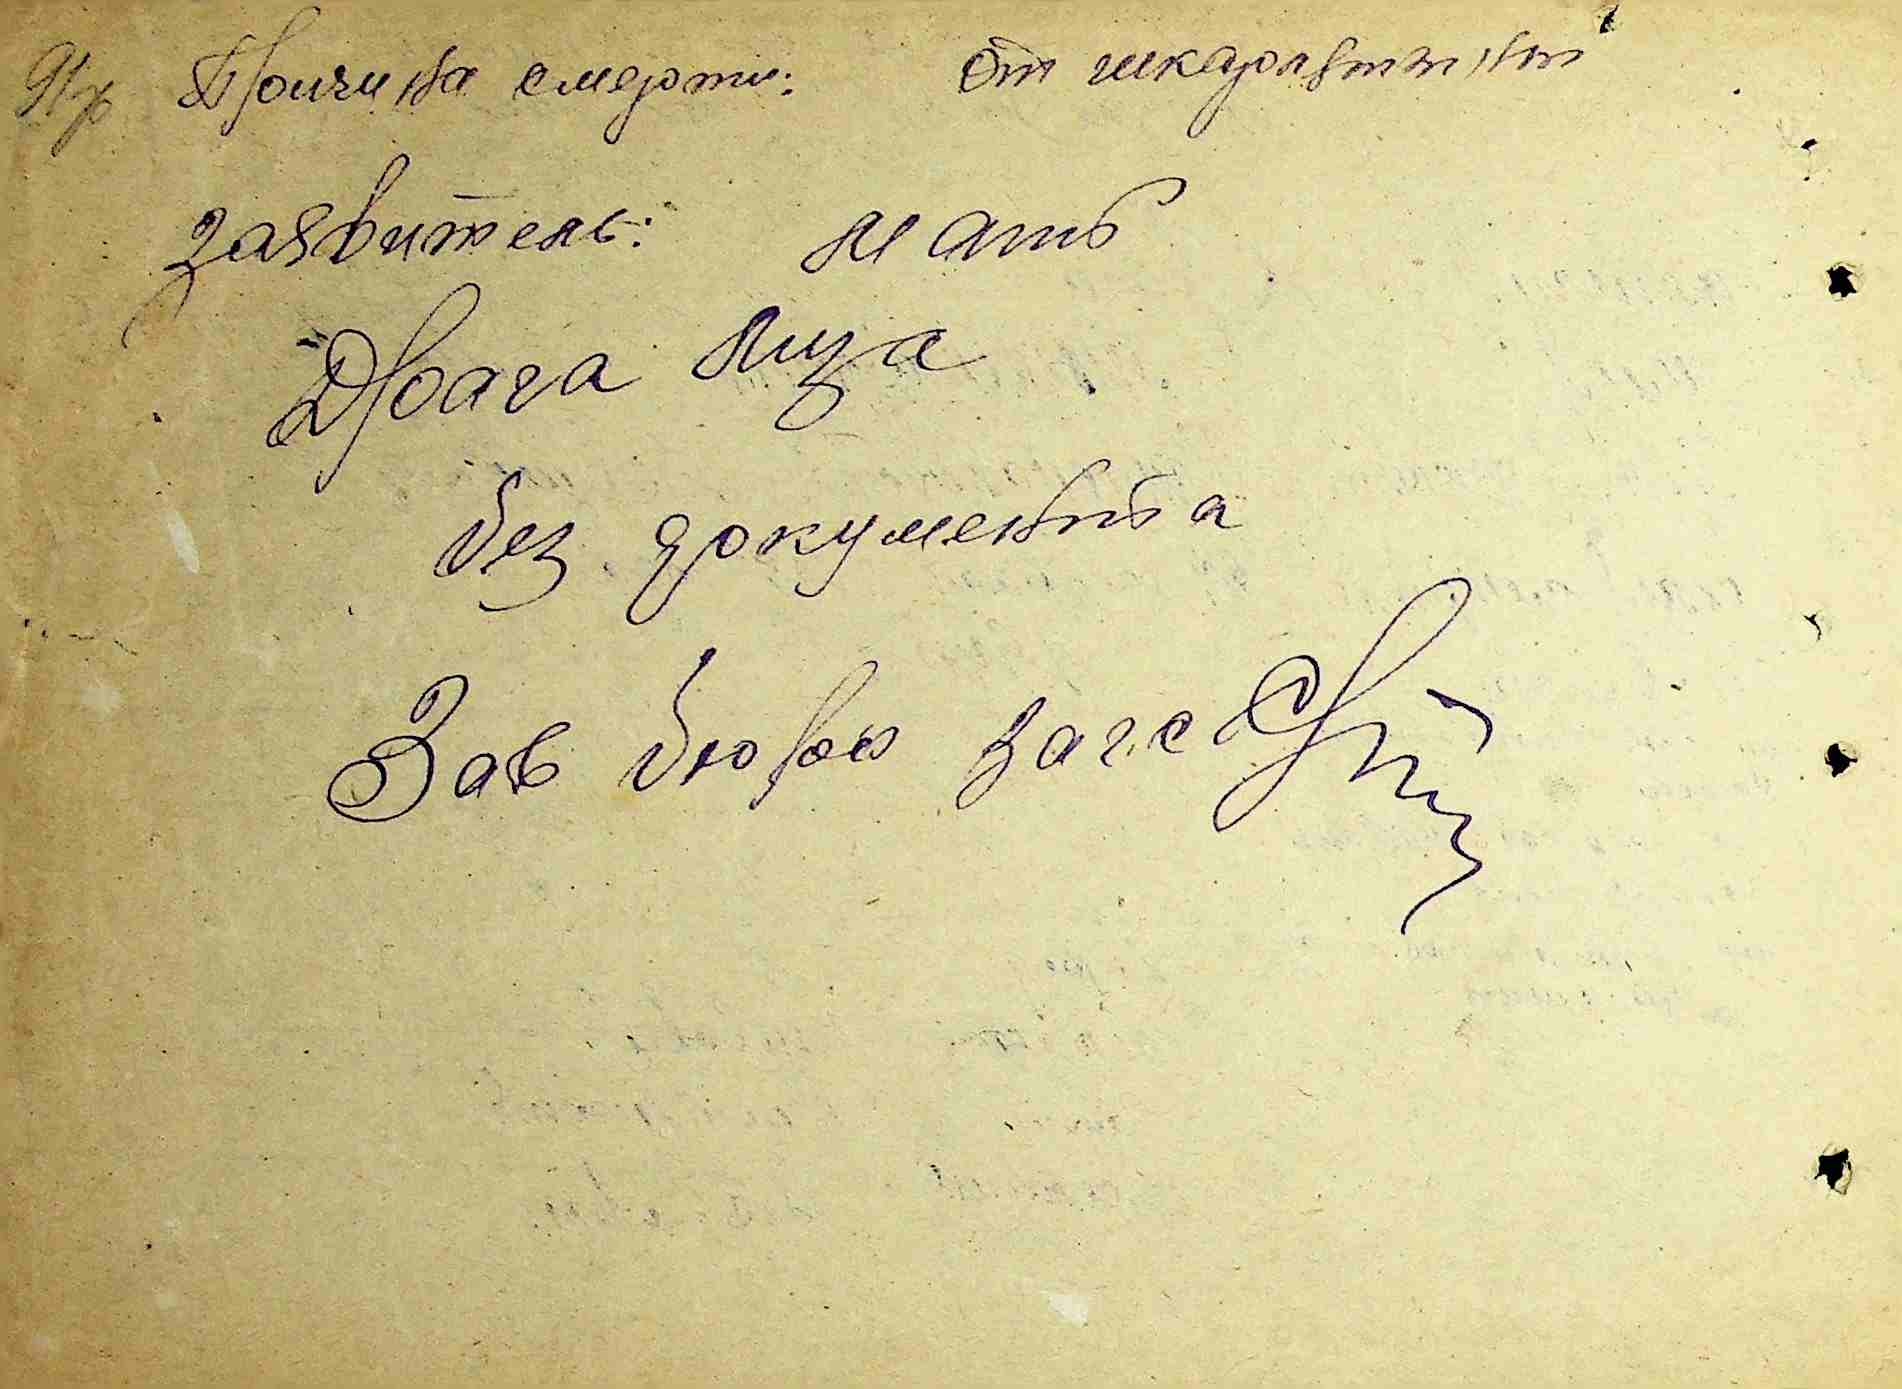 Причина смерти: от шкарлятины
заявитель: мать
Драга Лиза
без документа
Зав бюро загс